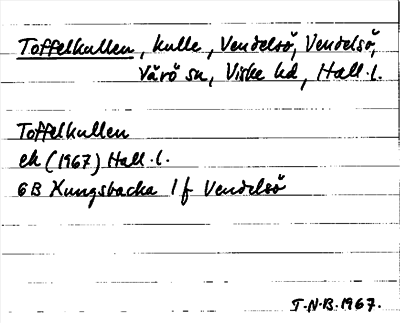 Toffelkullen, kulle, Vendelsö, Vendelsö,
Värö sn, Viske hd, Hall. l.
Toffelkullen
ek (1967) Hall. l.
6B Kungsbacka 1 f Vendelsö
T.N.B. 1967.